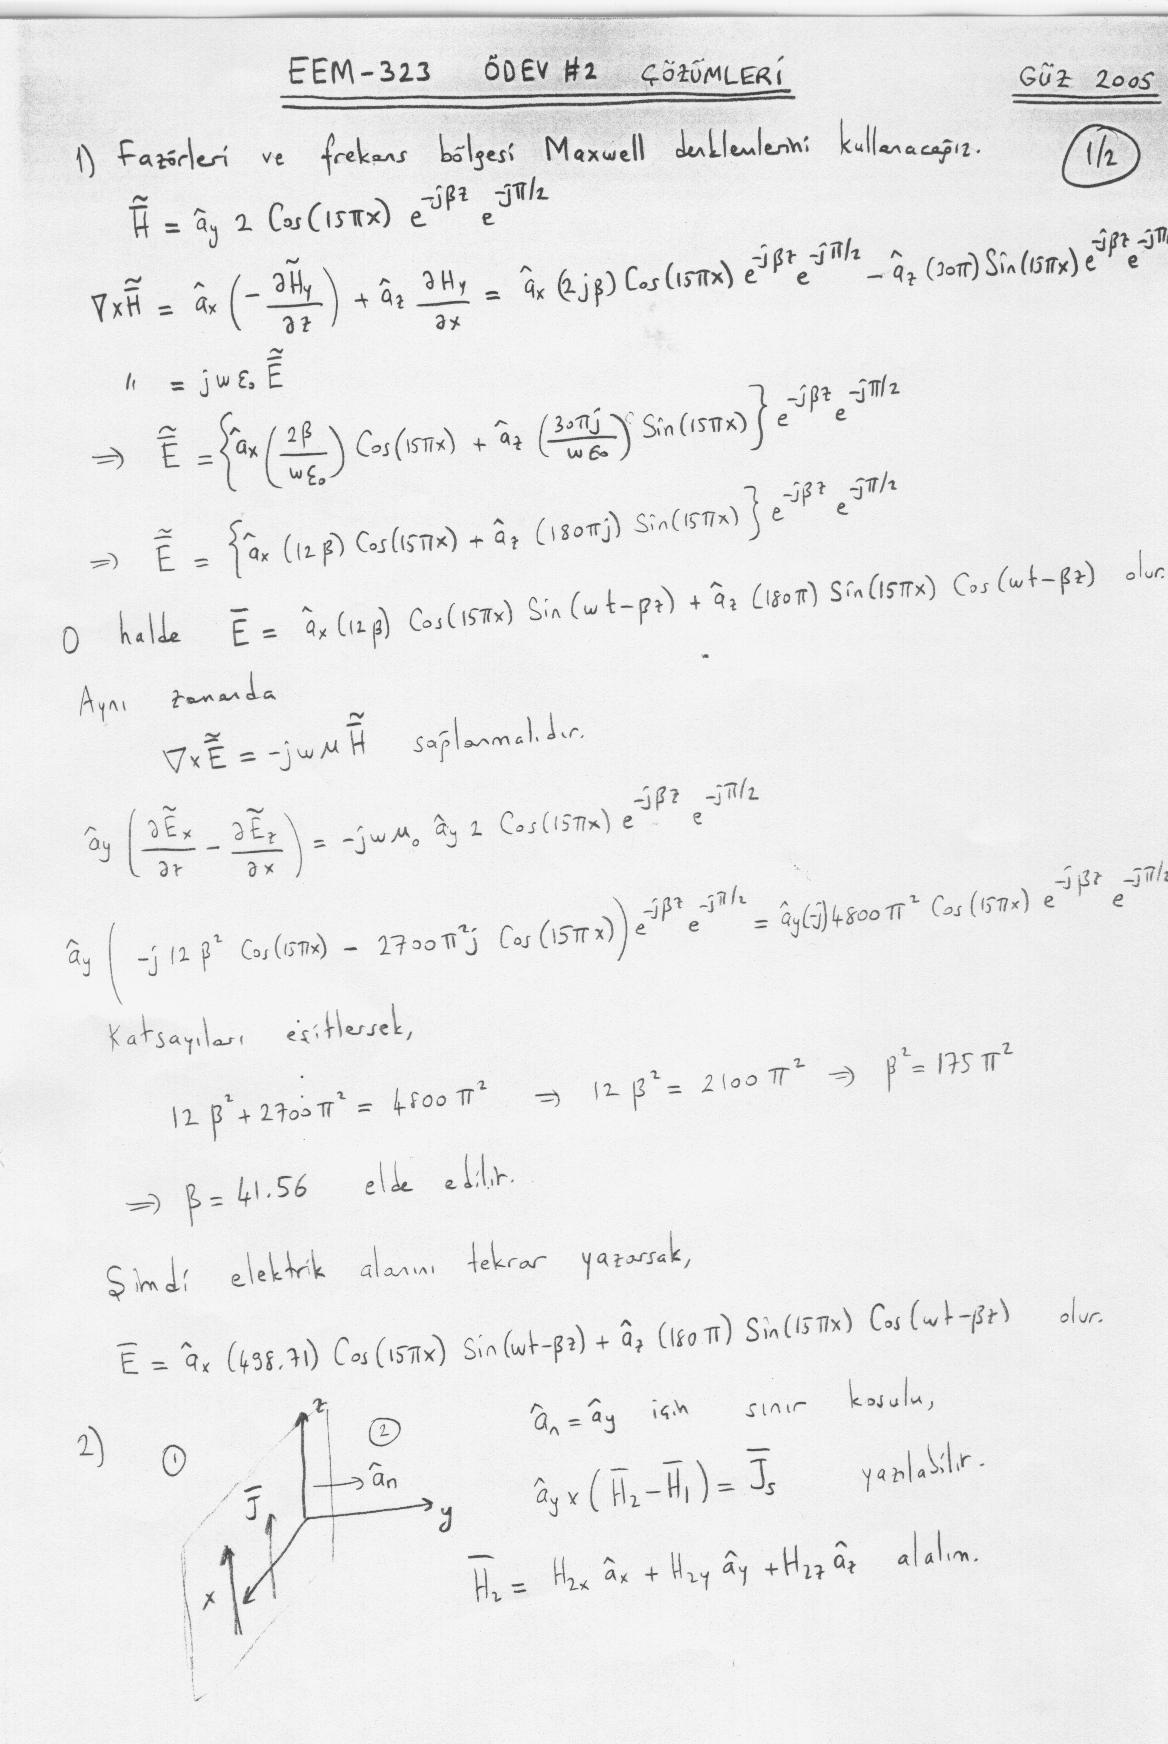 EEM-323 ÖDEV #2 ÇÖZÜMLERİ GÜZ 2005
1) Fazörleri ve frekans bölgesi Maxwell denklemlerini kullanacağız. 1/2
H̃̄ = ây 2 Cos(15πx) e^-jβz e^-jπ/2
∇xH̃̄ = âx (-∂H̃y/∂z) + âz ∂Hy/∂x = âx (2jβ) Cos(15πx) e^-jβz e^-jπ/2 - âz (30π) Sin(15πx) e^-jβz e^-jπ/
" = jwε₀ Ẽ̄
⇒ Ẽ̄ = {âx (2β/wε₀) Cos(15πx) + âz (30πj/wε₀) Sin(15πx)} e^-jβz e^-jπ/2
⇒ Ẽ̄ = {âx (12β) Cos(15πx) + âz (180πj) Sin(15πx)} e^-jβz e^-jπ/2
O halde E̅ = âx (12β) Cos(15πx) Sin(wt-βz) + âz (180π) Sin(15πx) Cos(wt-βz) olur.
Aynı zamanda
∇xẼ̄ = -jwμ H̃̄ sağlanmalıdır.
ây (∂Ẽx/∂z - ∂Ẽz/∂x) = -jwμ₀ ây 2 Cos(15πx) e^-jβz e^-jπ/2
ây (-j12β² Cos(15πx) - 2700π²j Cos(15πx)) e^-jβz e^-jπ/2 = ây(-j)4800π² Cos(15πx) e^-jβz e^-jπ/2
Katsayıları eşitlersek,
12β² + 2700π² = 4800π² ⇒ 12β² = 2100π² ⇒ β² = 175π²
⇒ β = 41.56 elde edilir.
Şimdi elektrik alanını tekrar yazarsak,
E̅ = âx (498.71) Cos(15πx) Sin(wt-βz) + âz (180π) Sin(15πx) Cos(wt-βz) olur.
2) ① ② z y x J̅ ân
ân = ây için sınır koşulu,
ây x (H̅₂ - H̅₁) = J̅s yazılabilir.
H̅₂ = H2x âx + H2y ây + H2z âz alalım.